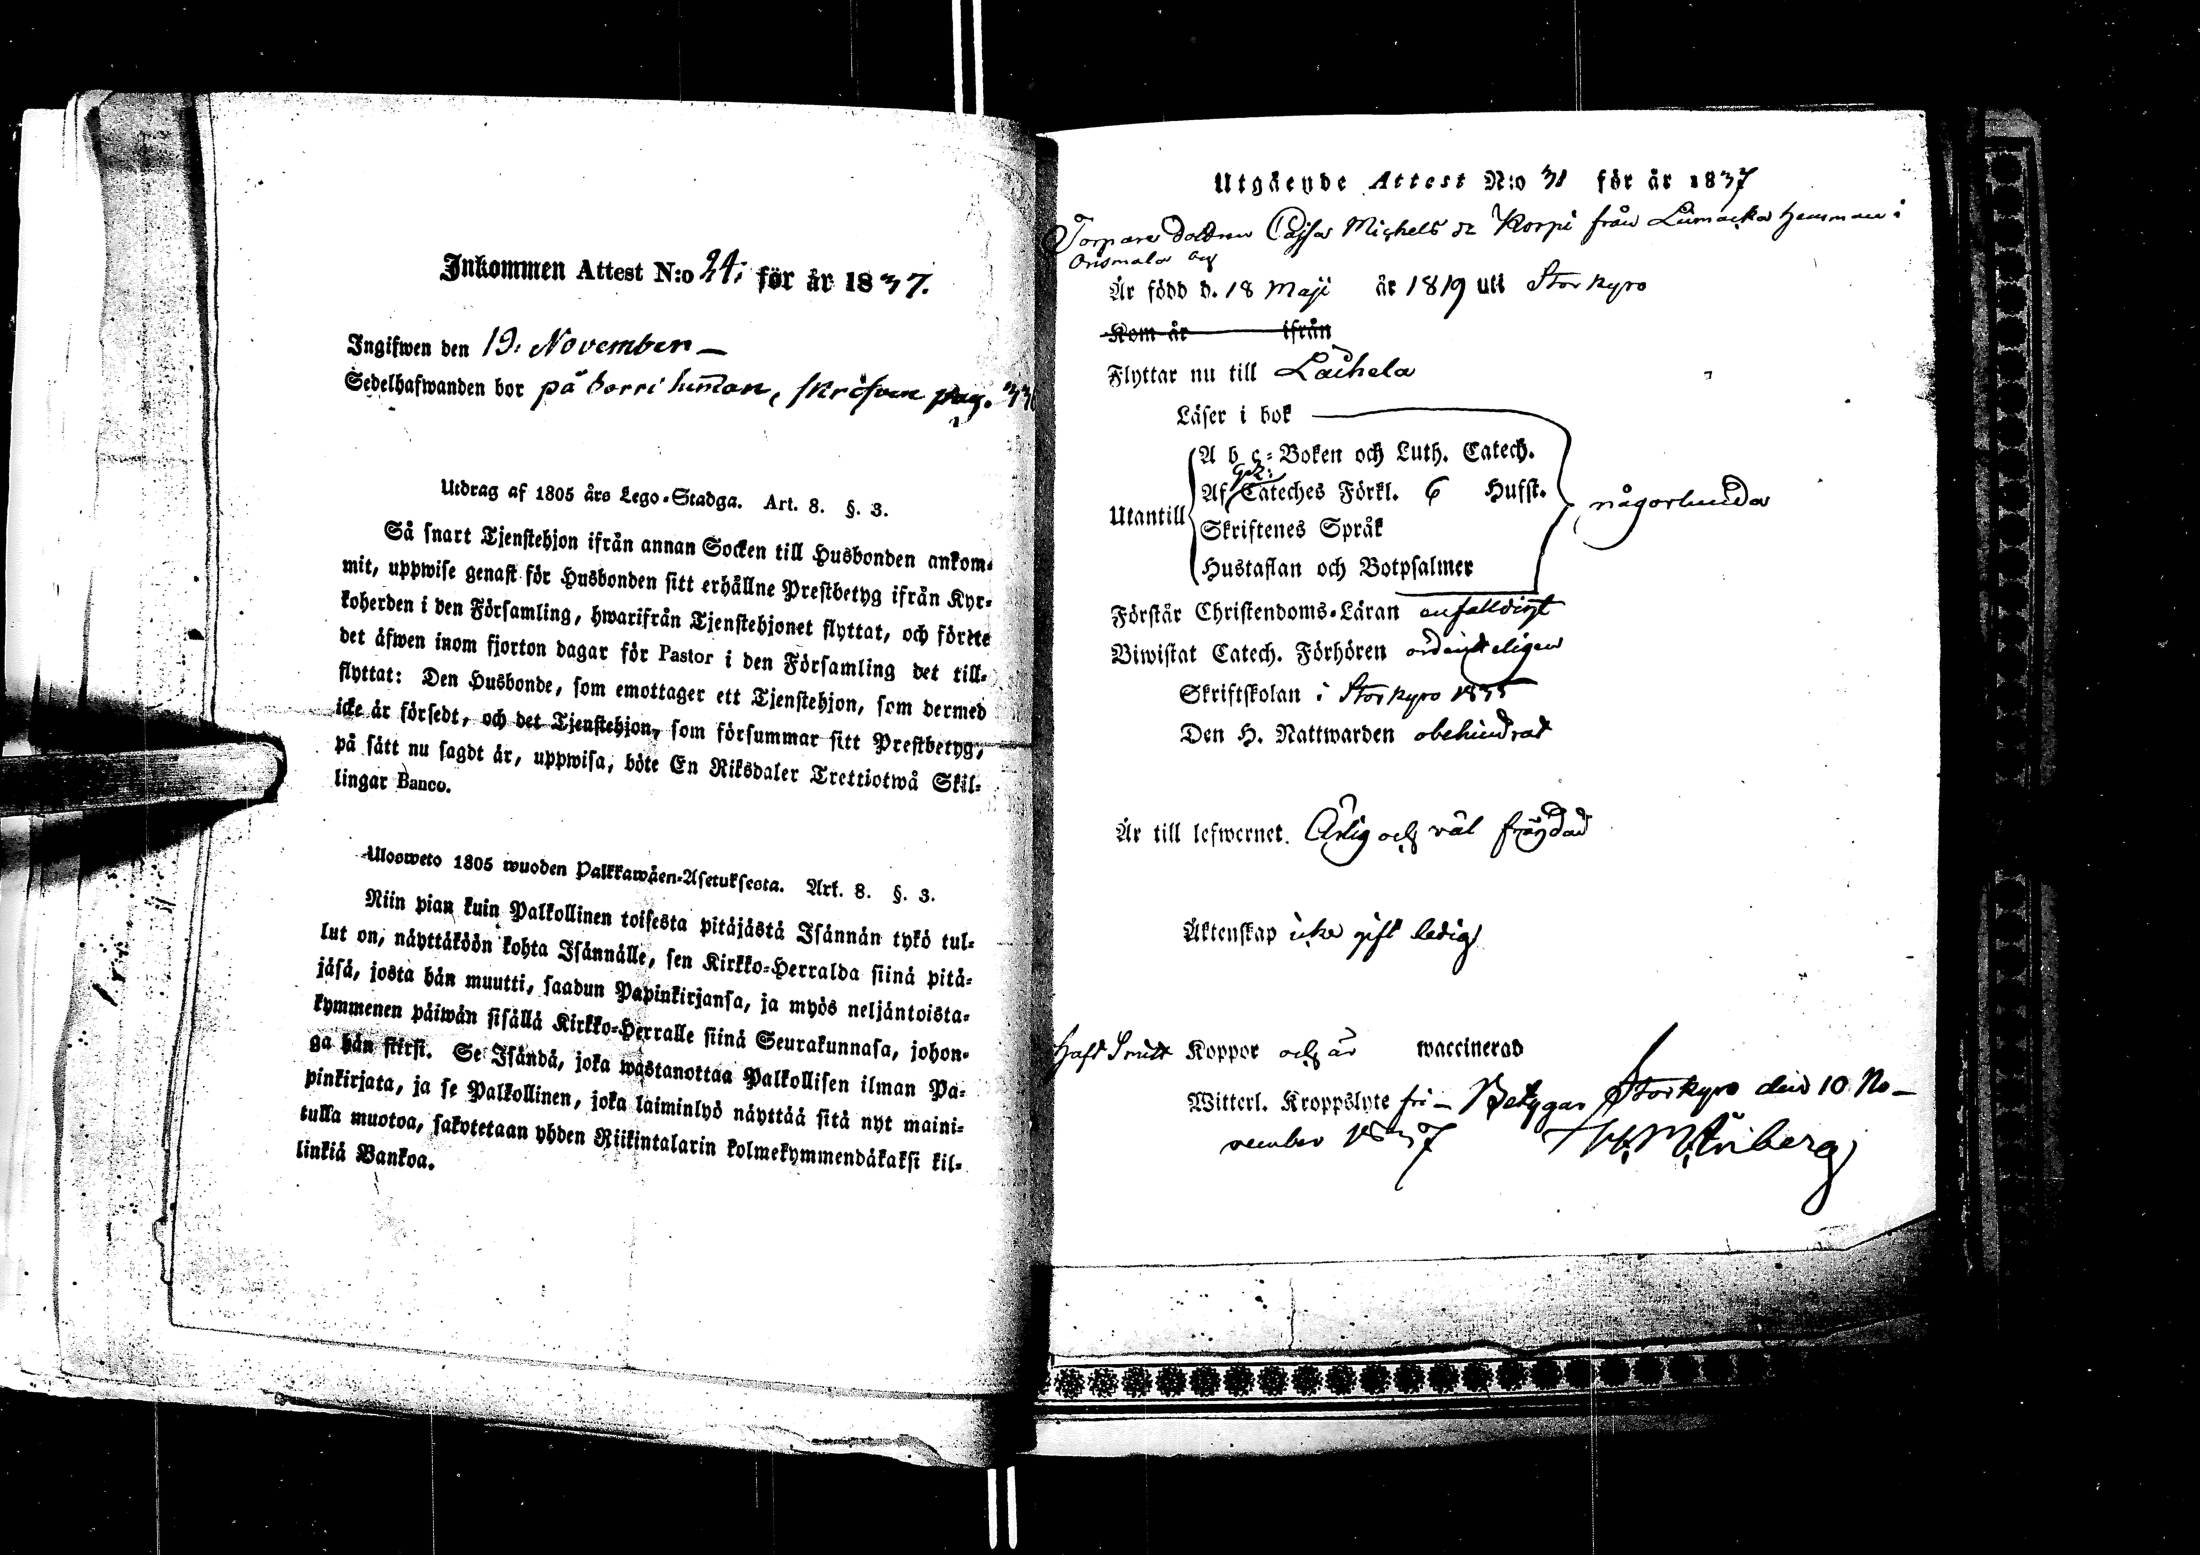 Inkommen Attest N:o 24; för år 1837.
Ingifwen den 19. November
Sedelhafwanden bor på Sorri human, skrifven pag. 336
Utdrag af 1805 års Lego-Stadga. Art. 8. §. 3.
Så snart Tjenstehjon ifrån annan Socken till Husbonden ankom-
mit, uppwise genast för Husbonden sitt erhållne Prestbetyg ifrån Kyr-
koherden i den Församling, hwarifrån Tjenstehjonet flyttat, och förete
det äfwen inom fjorton dagar för Pastor i den Församling det till-
flyttat: Den Husbonde, som emottager ett Tjenstehjon, som dermed
icke är försedt, och det Tjenstehjon, som försummar sitt Prestbetyg,
på sätt nu sagdt är, uppwisa, böte En Riksdaler Trettiotwå Skil-
lingar Banco.
Ulosweto 1805 wuoden Palkkawäen-Asetuksesta. Art. 8. §. 3.
Niin pian kuin Palkollinen toisesta pitäjästä Isännän tykö tul-
lut on, näyttäköön kohta Isännälle, sen Kirkko-Herralda siinä pitä-
jäsä, josta hän muutti, saadun Papinkirjansa, ja myös neljäntoista-
kymmenen päiwän sisällä Kirkko-Herralle siinä Seurakunnasa, johon-
ga hän siirsi. Se Isändä, joka wastanottaa Palkollisen ilman Pa-
pinkirjata, ja se Palkollinen, joka laiminlyö näyttää sitä nyt maini-
tulla muotoa, sakotetaan yhden Riikintalarin kolmekymmendäkaksi kil-
linkiä Bankoa.
Utgående Attest N:o 31 för år 1837
Torpare dottren Cajsa Michels dr Korpi från Lumacka hemman i
Orismala by
Är född d. 18 Maji år 1819 uti Storkyro
Kom år ifrån
Flyttar nu till Laihela
Läser i bok
A b c-Boken och Luth. Catech.
Af Cateches Förkl. 6 Hufst.
Utantill någorlunda
Skriftenes Språk
Hustaflan och Botpsalmer
Förstår Christendoms-Läran enfaldigt
Biwistat Catech. Förhören ordenteligen
Skriftskolan i Storkyro 1835
Den H. Nattwarden obehindrad
Är till lefwernet Ärlig och väl frägdad
Äktenskap icke gift ledig
Haft Smitt Koppor och är waccinerad
Witterl. Kroppslyte fri - Betygar Storkyro den 10 No-
vember 1837